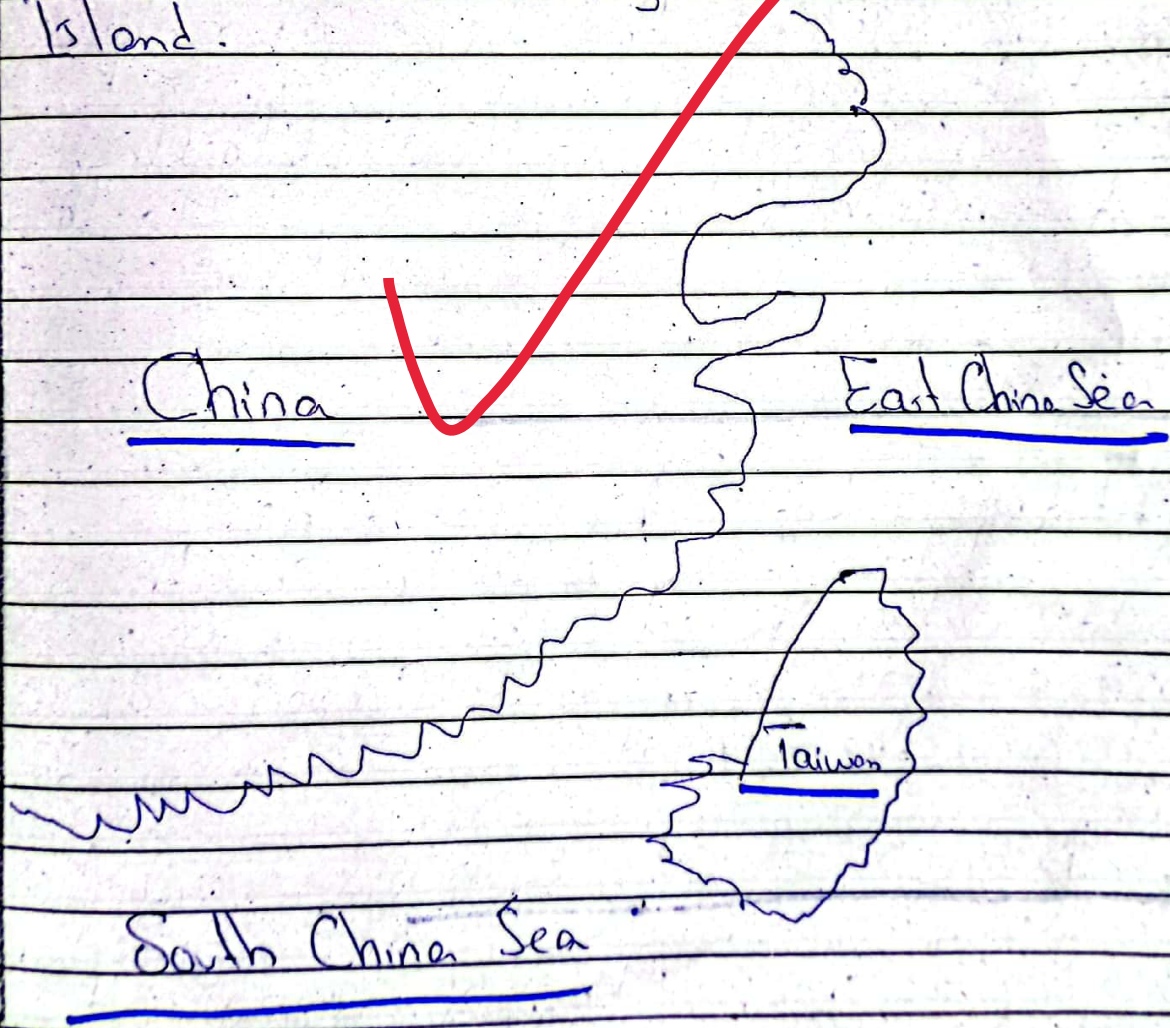 Island.
China
East China Sea
Taiwan
South China Sea